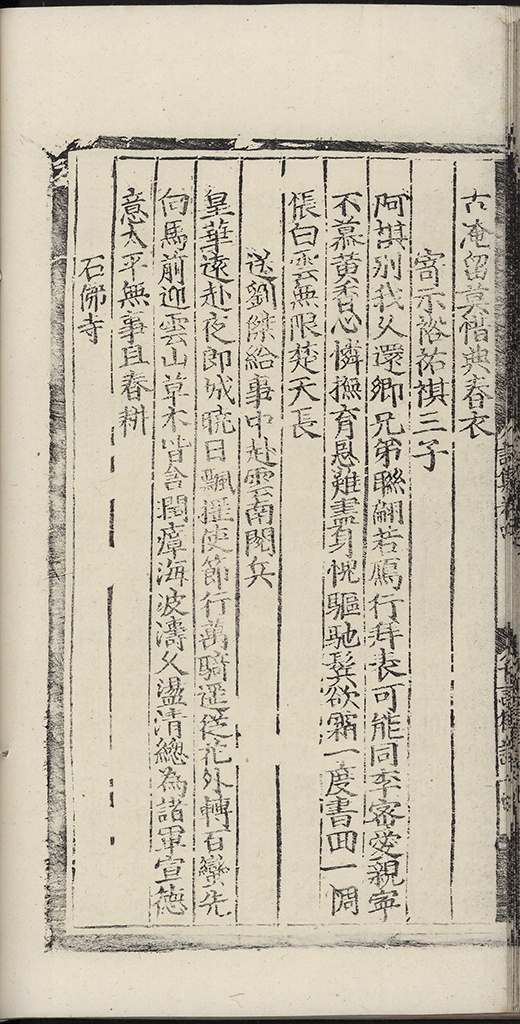 古淹留莫惜典春衣
寄示裕祐祺三子
阿祺別我久還鄉兄弟聯翩若鴈行拜表可能同李密愛親寧
不慕黃香心憐撫育恩難盡身愧驅馳鬂欲霜一度書回一惆
悵白雲無限楚天長
送劉傑給事中赴雲南閱兵
皇華遠赴夜郎城曉日飄搖使節行萬騎遥從花外轉百蠻先
向馬前迎雲山草木皆含潤瘴海波濤久盪清總為諸軍宣德
意太平無事且春耕
石佛寺